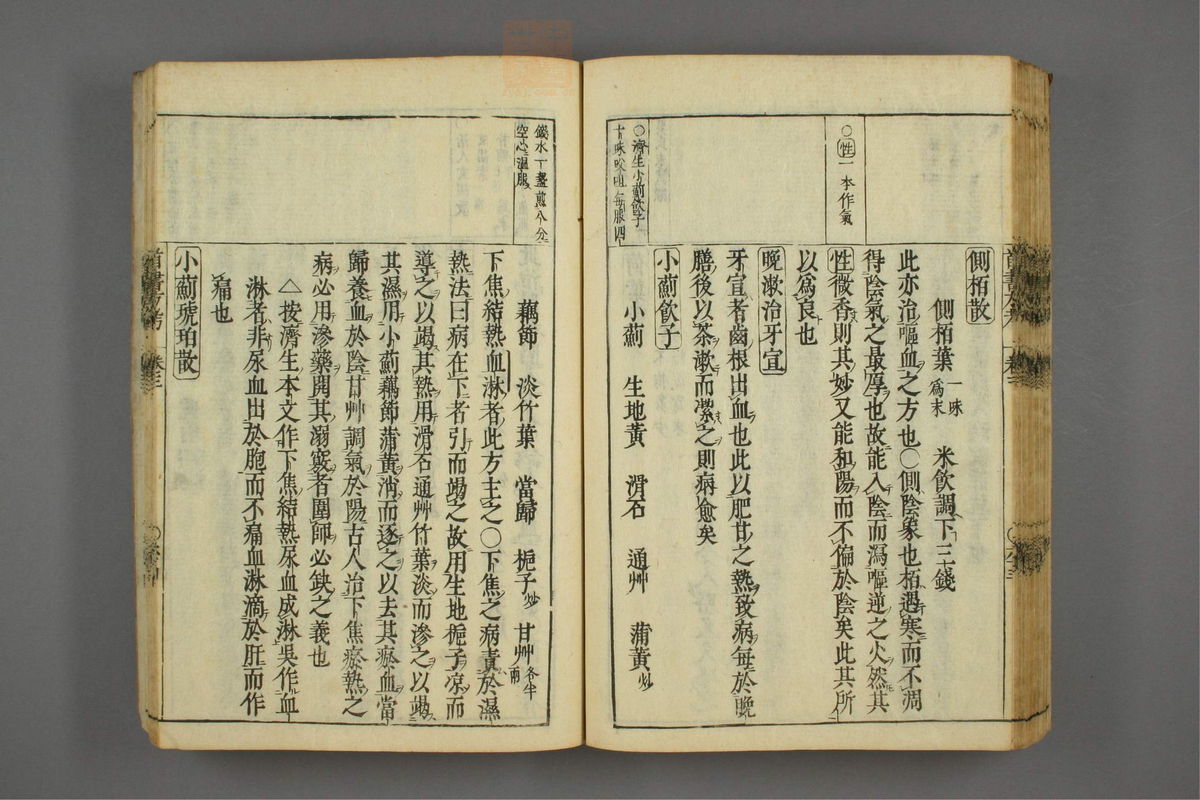 側栢散
側栢葉 一味爲末 米飲調下三錢
此亦治嘔血之方也〇側陰象也栢遇寒而不凋
得陰氣之最厚也故能入陰而瀉嘔逆之火然其
性微香則其妙又能和陽而不偏於陰矣此其所
以爲良也
晩漱治牙宣
牙宣者齒根出血也此以肥甘之熱致病每於晩
膳後以茶漱而潔之則病愈矣
小薊飲子
小薊 生地黃 滑石 通艸 蒲黃炒
〇性一本作氣
〇濟生小薊飲子
廿味㕮咀每服四
錢水一盞煎八分
空心溫服
藕節 淡竹葉 當歸 梔子炒 甘艸各半兩
下焦結熱血淋者此方主之〇下焦之病責於濕
熱法曰病在下者引而竭之故用生地梔子凉而
導之以竭其熱用滑石通艸竹葉淡而滲之以竭
其濕用小薊藕節蒲黃消而逐之以去其瘀血當
歸養血於陰甘艸調氣於陽古人治下焦瘀熱之
病必用滲藥開其溺竅者圍師必缺之義也
△按濟生本文作下焦結熱尿血成淋吳作血
淋者非尿血出於胞而不痛血淋滴於肝而作
痛也
小薊琥珀散
卷三